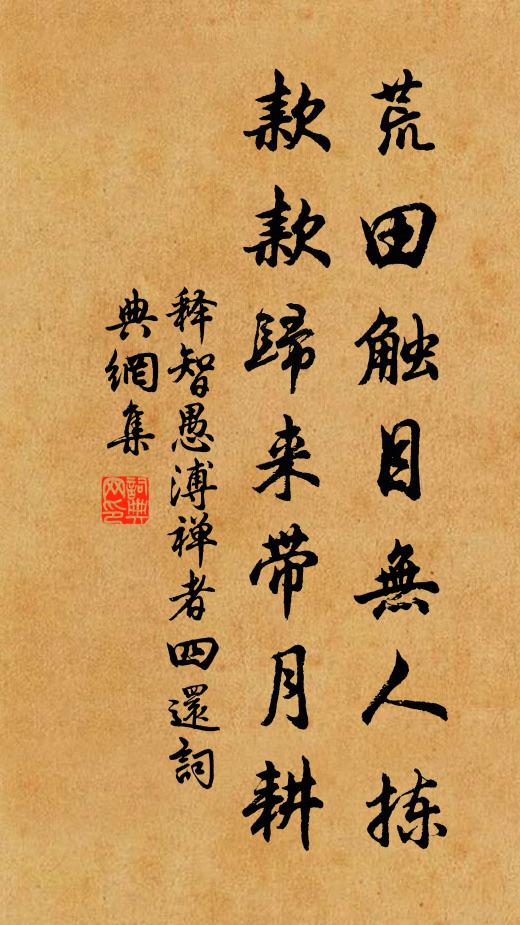 荒田触目無人拣
款款歸来带月耕
释智愚溥禅者四還詞
典網集
詞典网印